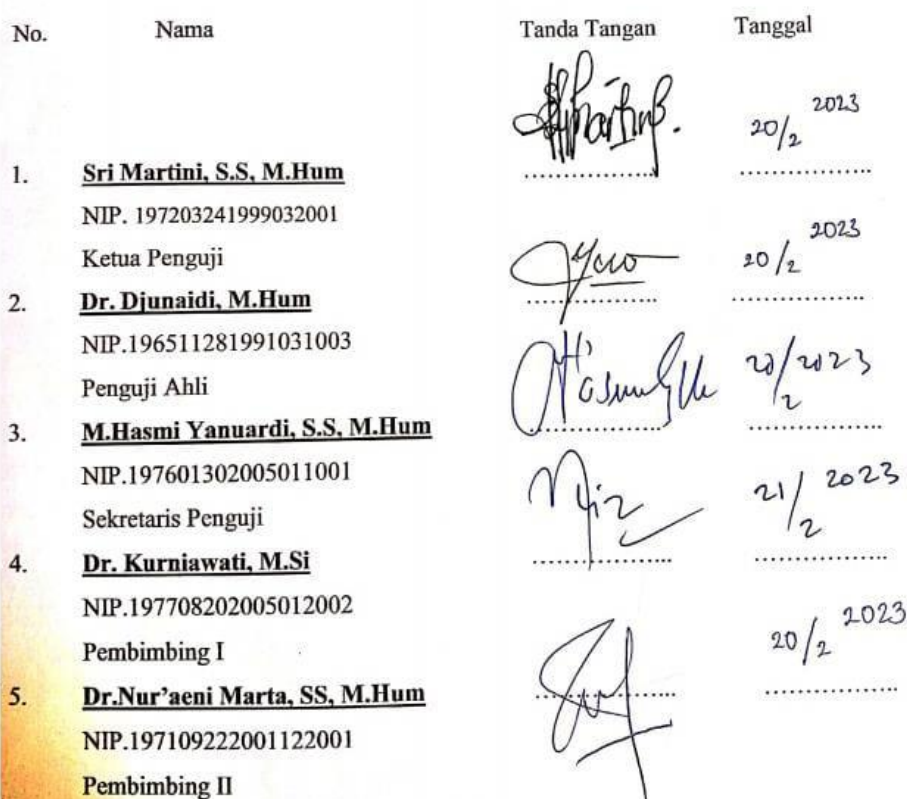 No. Nama Tanda Tangan Tanggal
20/2 2023
1. Sri Martini, S.S, M.Hum ................. .................
NIP. 197203241999032001
Ketua Penguji 20/2 2023
2. Dr. Djunaidi, M.Hum ................. .................
NIP.196511281991031003 20/2 2023
Penguji Ahli
3. M.Hasmi Yanuardi, S.S, M.Hum ................. .................
NIP.197601302005011001 21/2 2023
Sekretaris Penguji
4. Dr. Kurniawati, M.Si ................. .................
NIP.197708202005012002
Pembimbing I 20/2 2023
5. Dr.Nur'aeni Marta, SS, M.Hum ................. .................
NIP.197109222001122001
Pembimbing II